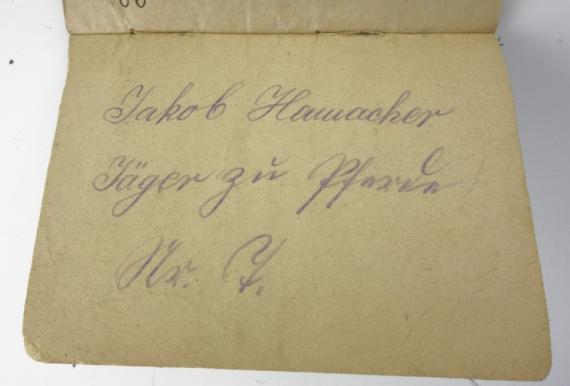 60
Jakob Hamacher
Jäger zu Pferde
Nr. 7.